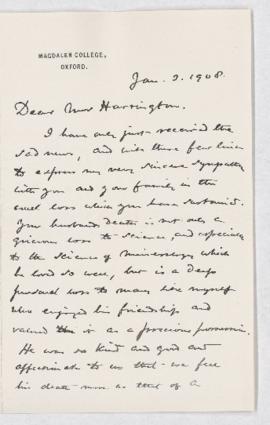 MAGDALEN COLLEGE,
OXFORD.
Jan. 2. 1908.
Dear Mrs Harrington.
I have only just received the
sad news, and write these few lines
to express my very sincere sympathy
with you and your family in the
cruel loss which you have sustained.
Your husband's death is not only a
grievous loss to science, and especially
to the science of mineralogy which
he loved so well, but is a deep
personal loss to many like myself
who enjoyed his friendship and
valued it as a precious possession.
He was so kind and good and
affectionate to us that we feel
his death now as that of a